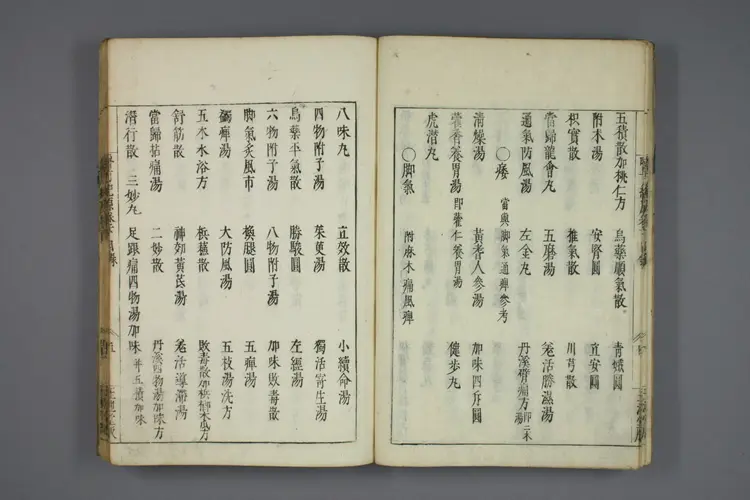 五積散加桃仁方 烏藥順氣散 青娥圓
附朮湯 安腎圓 立安圓
枳實散 推氣散 川芎散
當歸龍會丸 五磨湯 羌活勝濕湯
通氣防風湯 左金丸 丹溪臂痛方 即二朮湯
○痿 當與脚氣通痺參考
清燥湯 黃耆人參湯 加味四斤圓
藿香養胃湯 即藿仁養胃湯 健步丸
虎潛丸
○脚氣 附麻木痛風痺
八味丸 立效散 小續命湯
四物附子湯 茱萸湯 獨活寄生湯
烏藥平氣散 勝駿圓 左經湯
六物附子湯 八物附子湯 加味敗毒散
脚氣炙風市 換腿圓 五痺湯
蠲痺湯 大防風湯 五枝湯洗方
五木水浴方 檳蘇散 敗毒散加
舒筋散 神効黃芪湯 羌活導滯湯
當歸拈痛湯 二妙散 丹溪四物湯加味方
潛行散 三妙丸 足跟痛四物湯加味 并五積加味